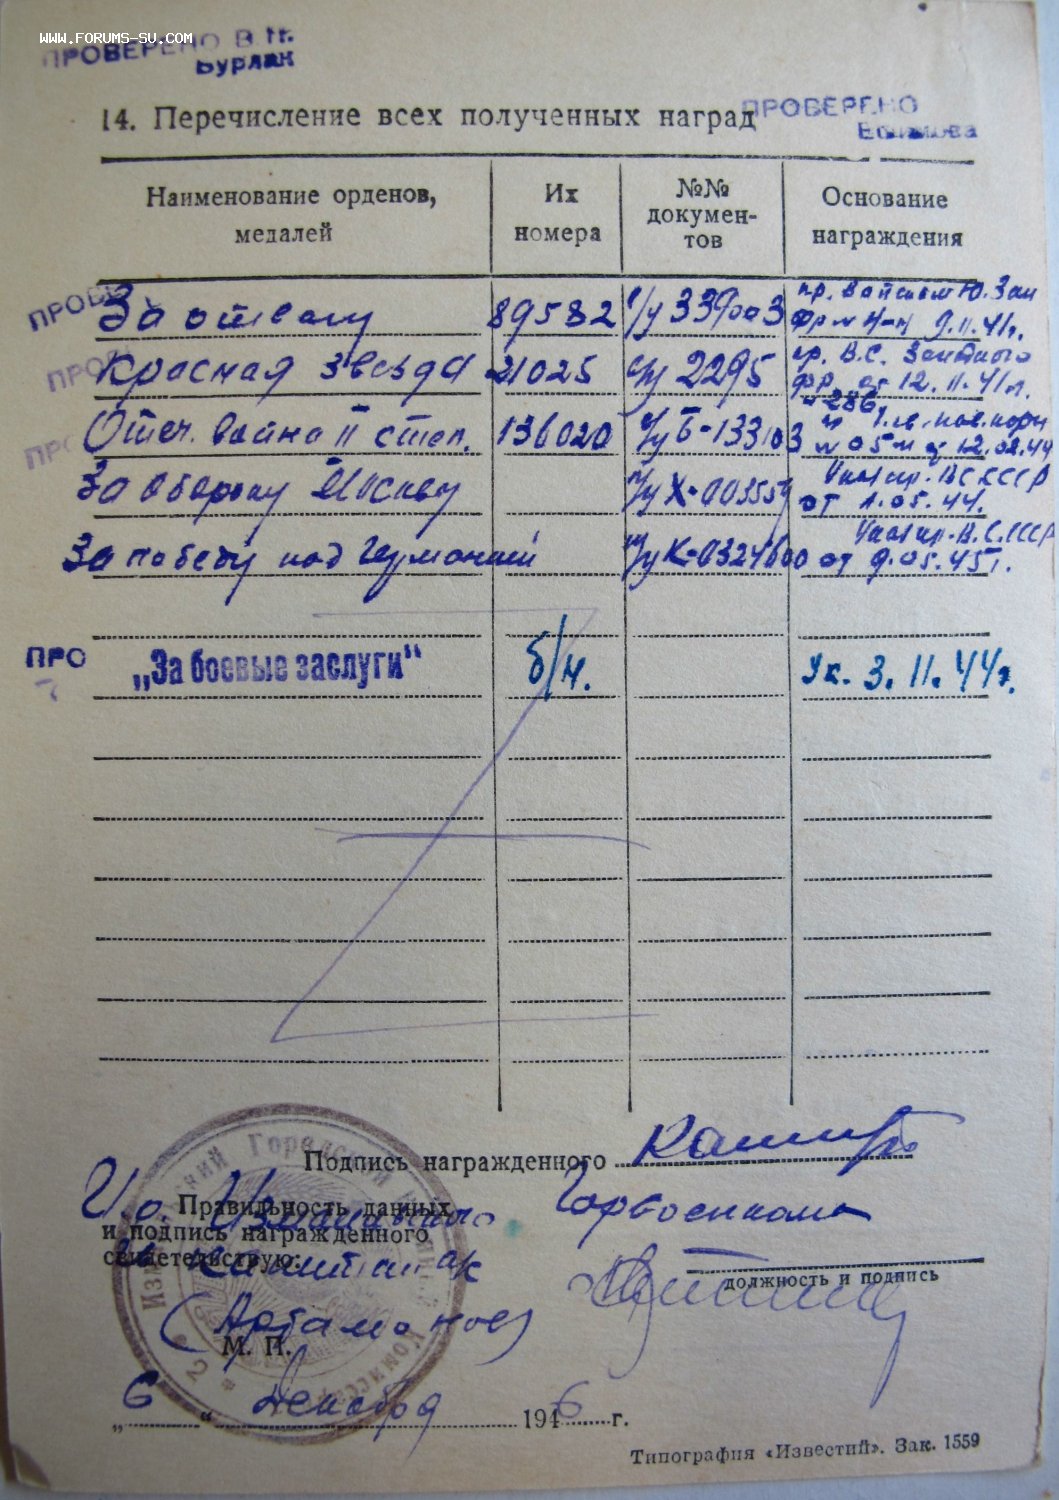 www.forums-su.com
ПРОВЕРЕНО В.Н.
Бурлак
14. Перечисление всех полученных наград
ПРОВЕРЕНО
Ефимова
Наименование орденов, медалей
Их номера
№№ документов
Основание награждения
ПРОВЕ За отвагу 89582 у/у 339003 пр. войскам Ю. Зап
фр № 4-н 9.11.41г.
ПРО Красная звезда 21025 у/у 2295 пр. В.С. Западного
фр. от 12.11.41г.
ПРО Отеч. война II степ. 136020 у/у Б-133103 № 286
№ 05-н от 12.02.44
За оборону Москвы у/у Х-003559 Указ пр. ВС СССР
от 1.05.44.
За победу над Германией у/у К-0324600 Указ пр. В.С. СССР
от 9.05.45г.
ПРО „За боевые заслуги“ б/н. Ук. 3.11.44г.
Подпись награжденного
И.о. Измаильского Горвоенкома
Правильность данных
и подпись награжденного
свидетельствую:
капитан а/к
должность и подпись
(Артамонов)
М. П.
„6“ Декабря 1946 г.
Типография «Известий». Зак. 1559